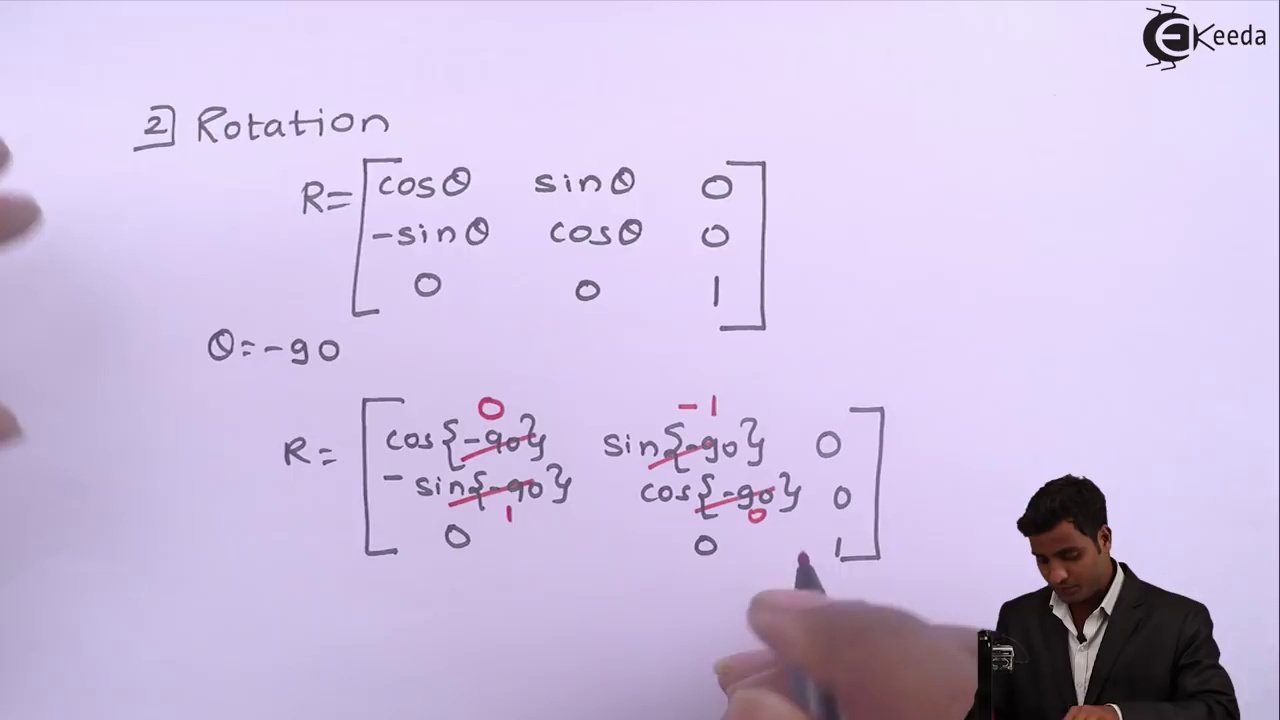 Keeda
2] Rotation
R= [ cosθ sinθ 0
-sinθ cosθ 0
0 0 1 ]
θ=-90
0 -1
R= [ cos{-90} sin{-90} 0
-sin{-90} cos{-90} 0
1 0
0 0 1 ]